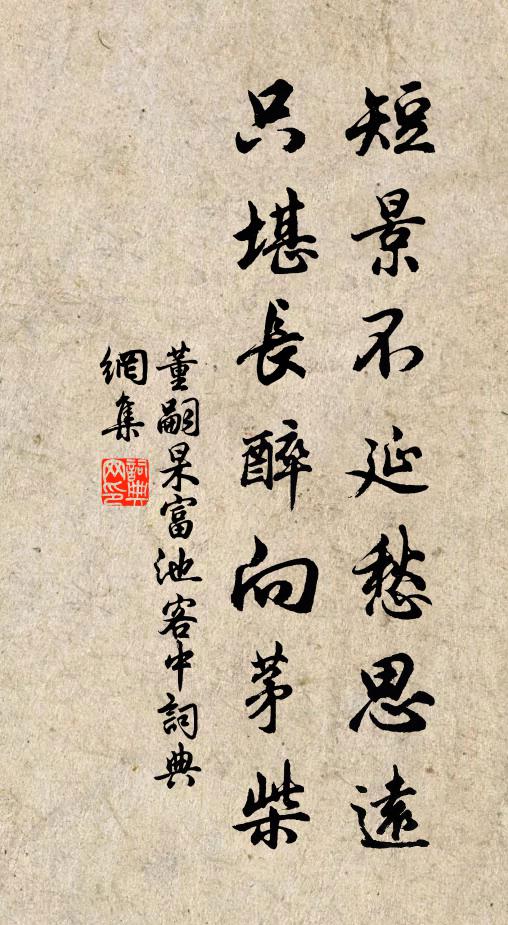 短景不延愁思遠
只堪長醉向茅柴
董嗣杲富池客中詞典
網集
詞典網印